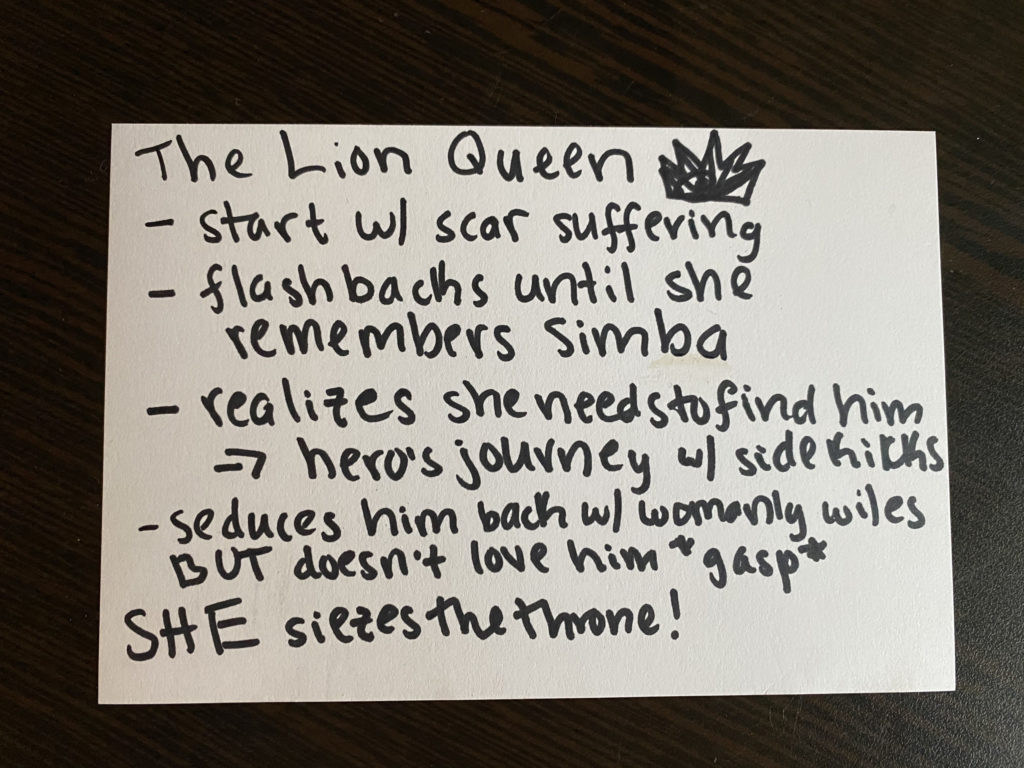 The Lion Queen
- start w/ scar suffering
- flashbacks until she
remembers Simba
- realizes she needs to find him
→ hero's journey w/ sidekicks
- seduces him back w/ womanly wiles
BUT doesn't love him *gasp*
SHE siezes the throne!